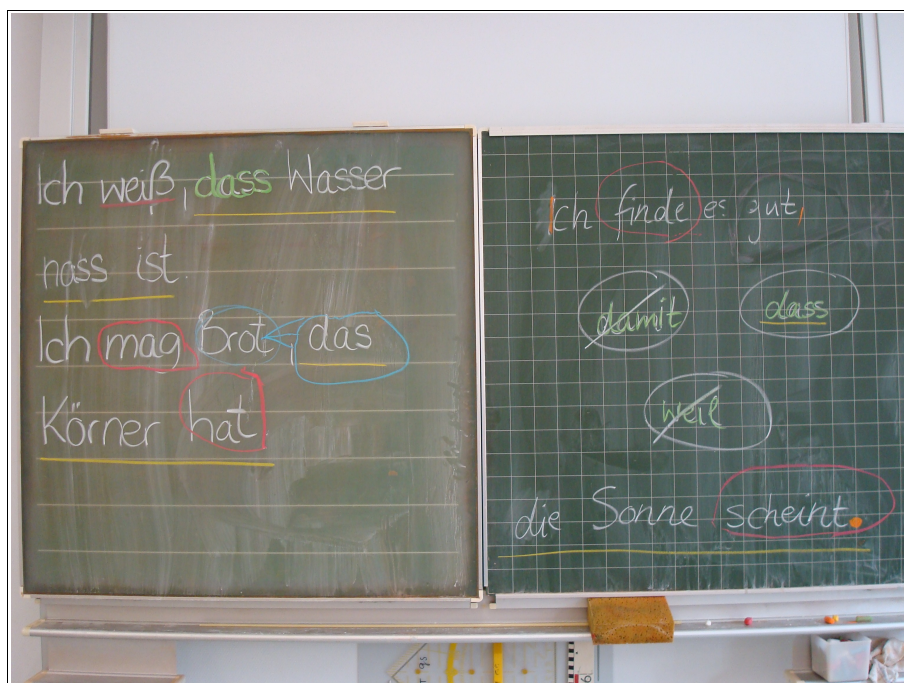 Ich weiß, dass Wasser
nass ist.
Ich mag Brot, das
Körner hat.
Ich finde es gut,
damit dass
weil
die Sonne scheint.